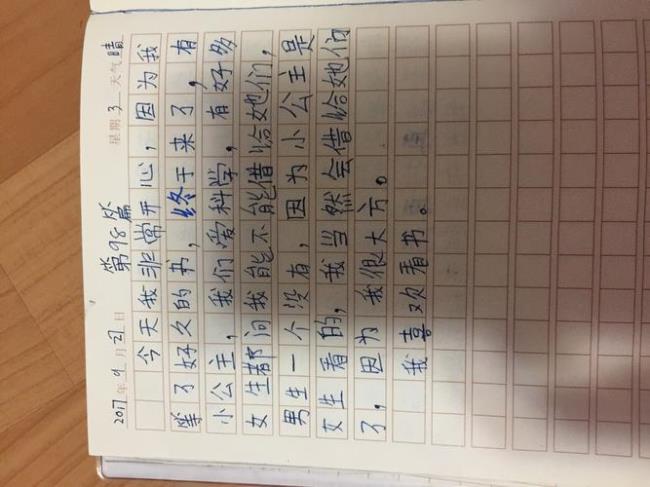 2017年9月27日 星期3 天气晴
第98篇
今天我非常开心，因为我
等了好久的书，终于来了，有
小公主，我们爱科学，有好多
女生都问我能不能借给她们，
男生一个没有，因为小公主是
女生看的，我当然会借给她们
了，因为我很大方。
我喜欢看书。